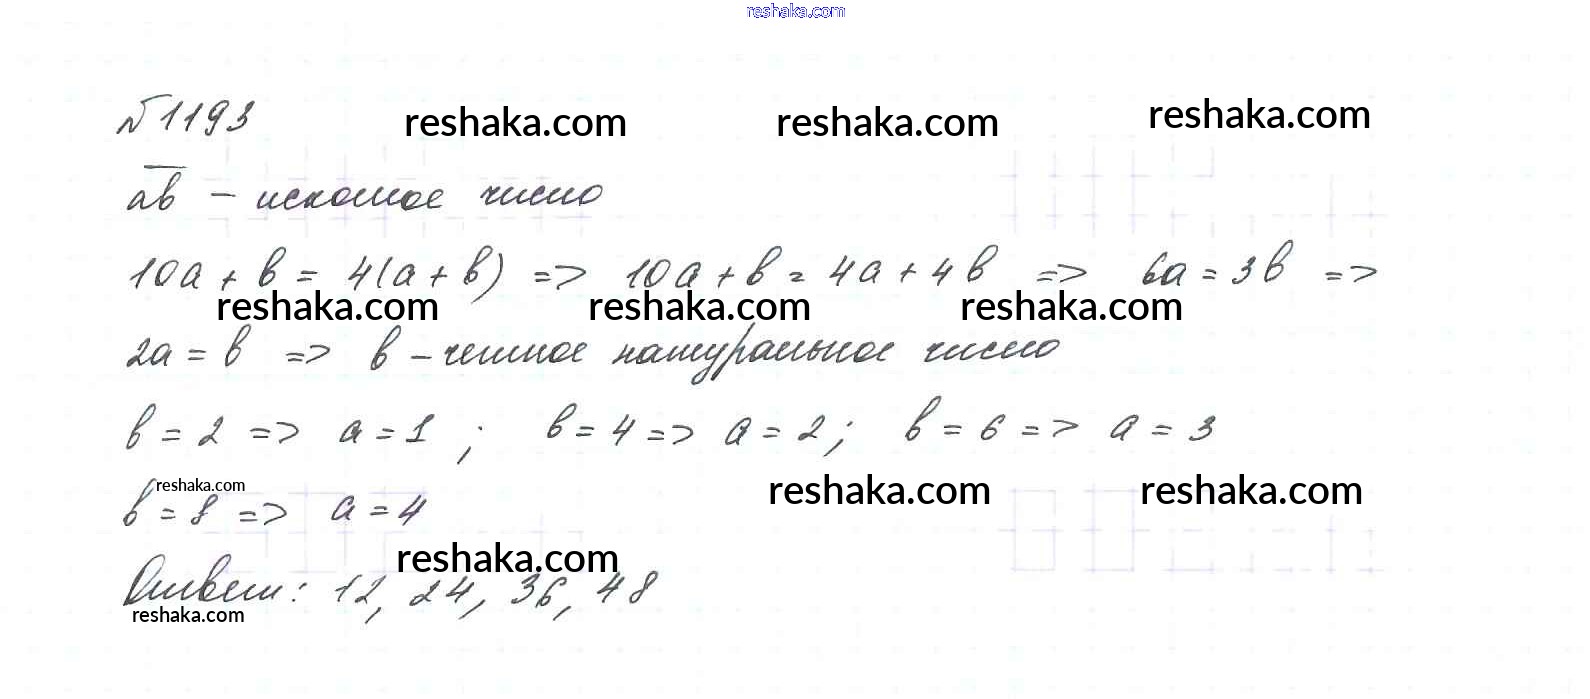 reshaka.com
№1193
reshaka.com reshaka.com reshaka.com
ab – искомое число
10a + b = 4(a + b) => 10a + b = 4a + 4b => 6a = 3b =>
reshaka.com reshaka.com reshaka.com
2a = b => b – четное натуральное число
b = 2 => a = 1 ; b = 4 => a = 2 ; b = 6 => a = 3
reshaka.com reshaka.com reshaka.com
b = 8 => a = 4
reshaka.com
Ответ: 12, 24, 36, 48
reshaka.com